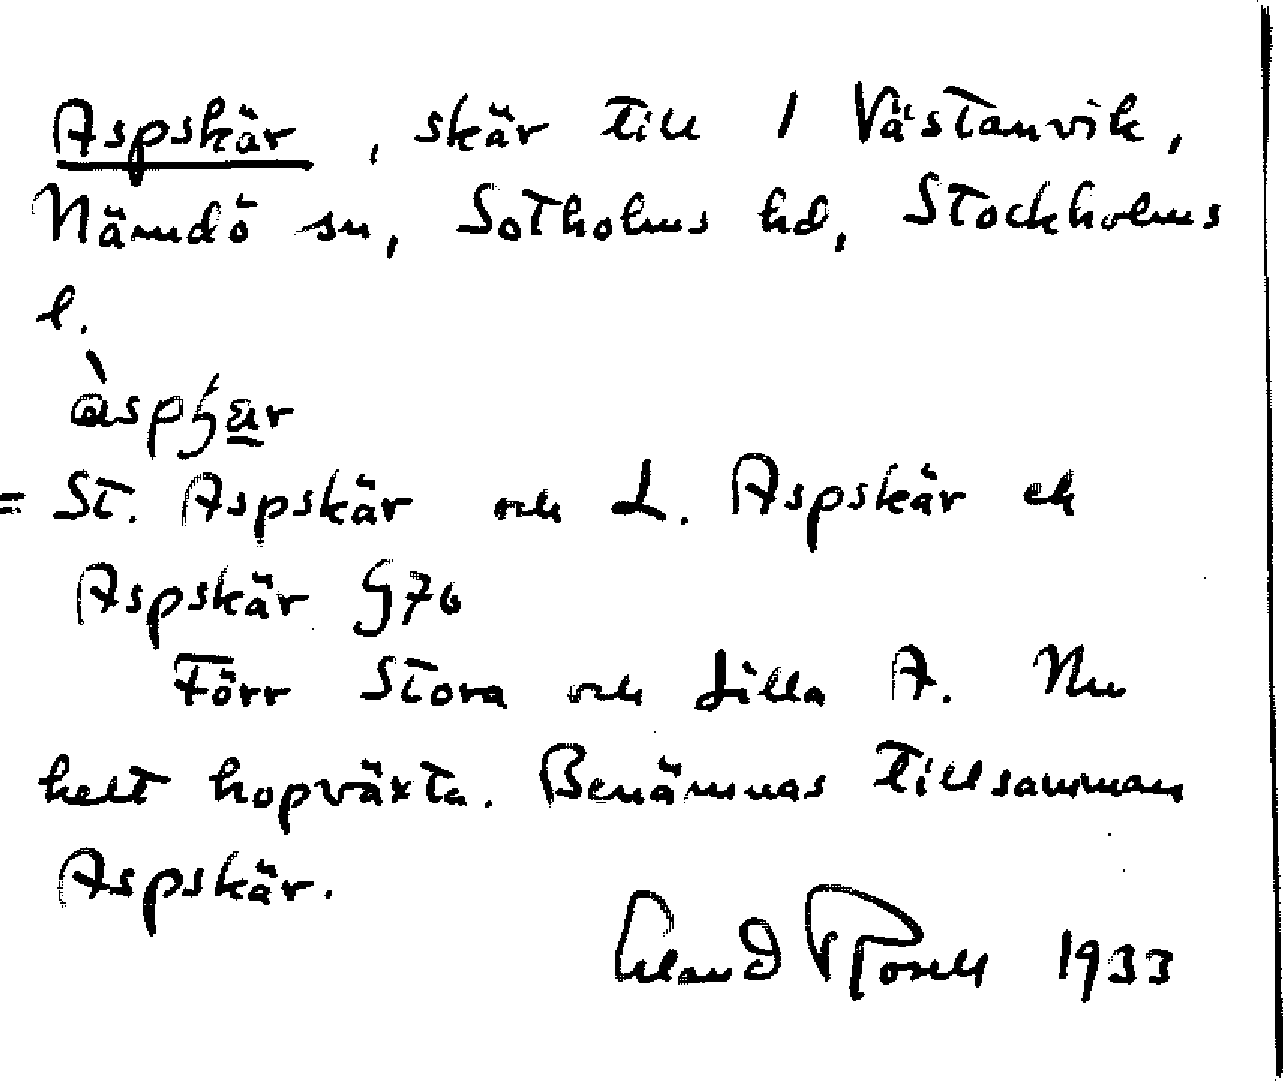 Aspskär, skär till 1 Västanvik,
Nämdö sn, Sotholms hd, Stockholms
l.
= St. Aspskär och L. Aspskär ek
Aspskär G76
Förr Stora och Lilla A. Nu
helt hopväxta. Benämnas tillsamman
Aspskär.
Erland Rosell 1933